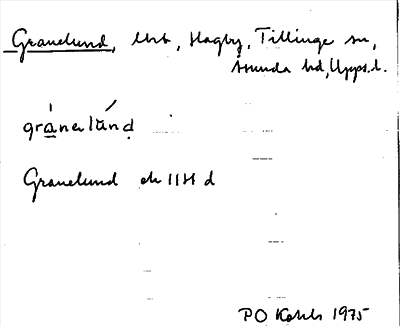 Granelund, Ubt, Hagby, Tillinge sn,
Åsunda hd, Upps. l.
grànerlúnḍ
Granelund ek IIH d
PO Kohls 1975